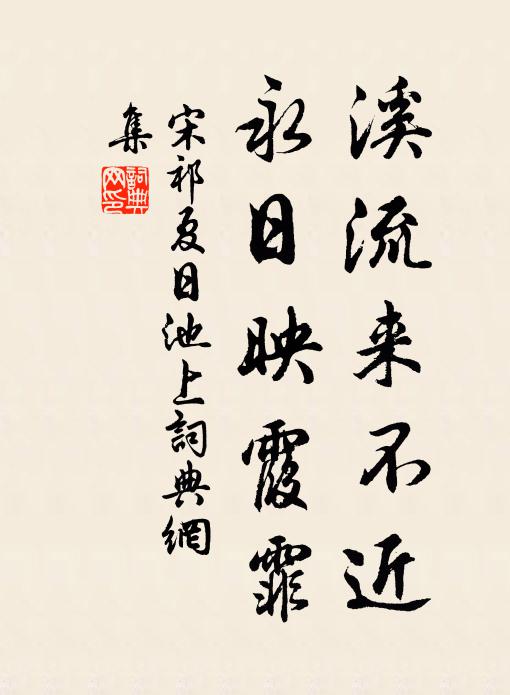 溪流来不近
永日映霞霏
宋祁夏日池上詞典網
集
詞典网印